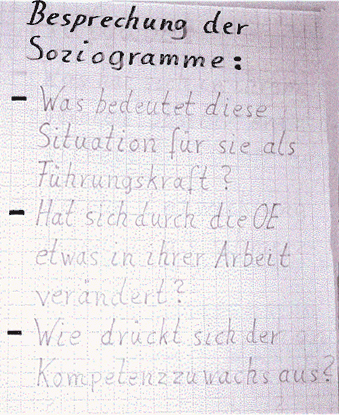 Besprechung der
Soziogramme:
- Was bedeutet diese
Situation für sie als
Führungskraft?
- Hat sich durch die OE
etwas in ihrer Arbeit
verändert?
- Wie drückt sich der
Kompetenzzuwachs aus?